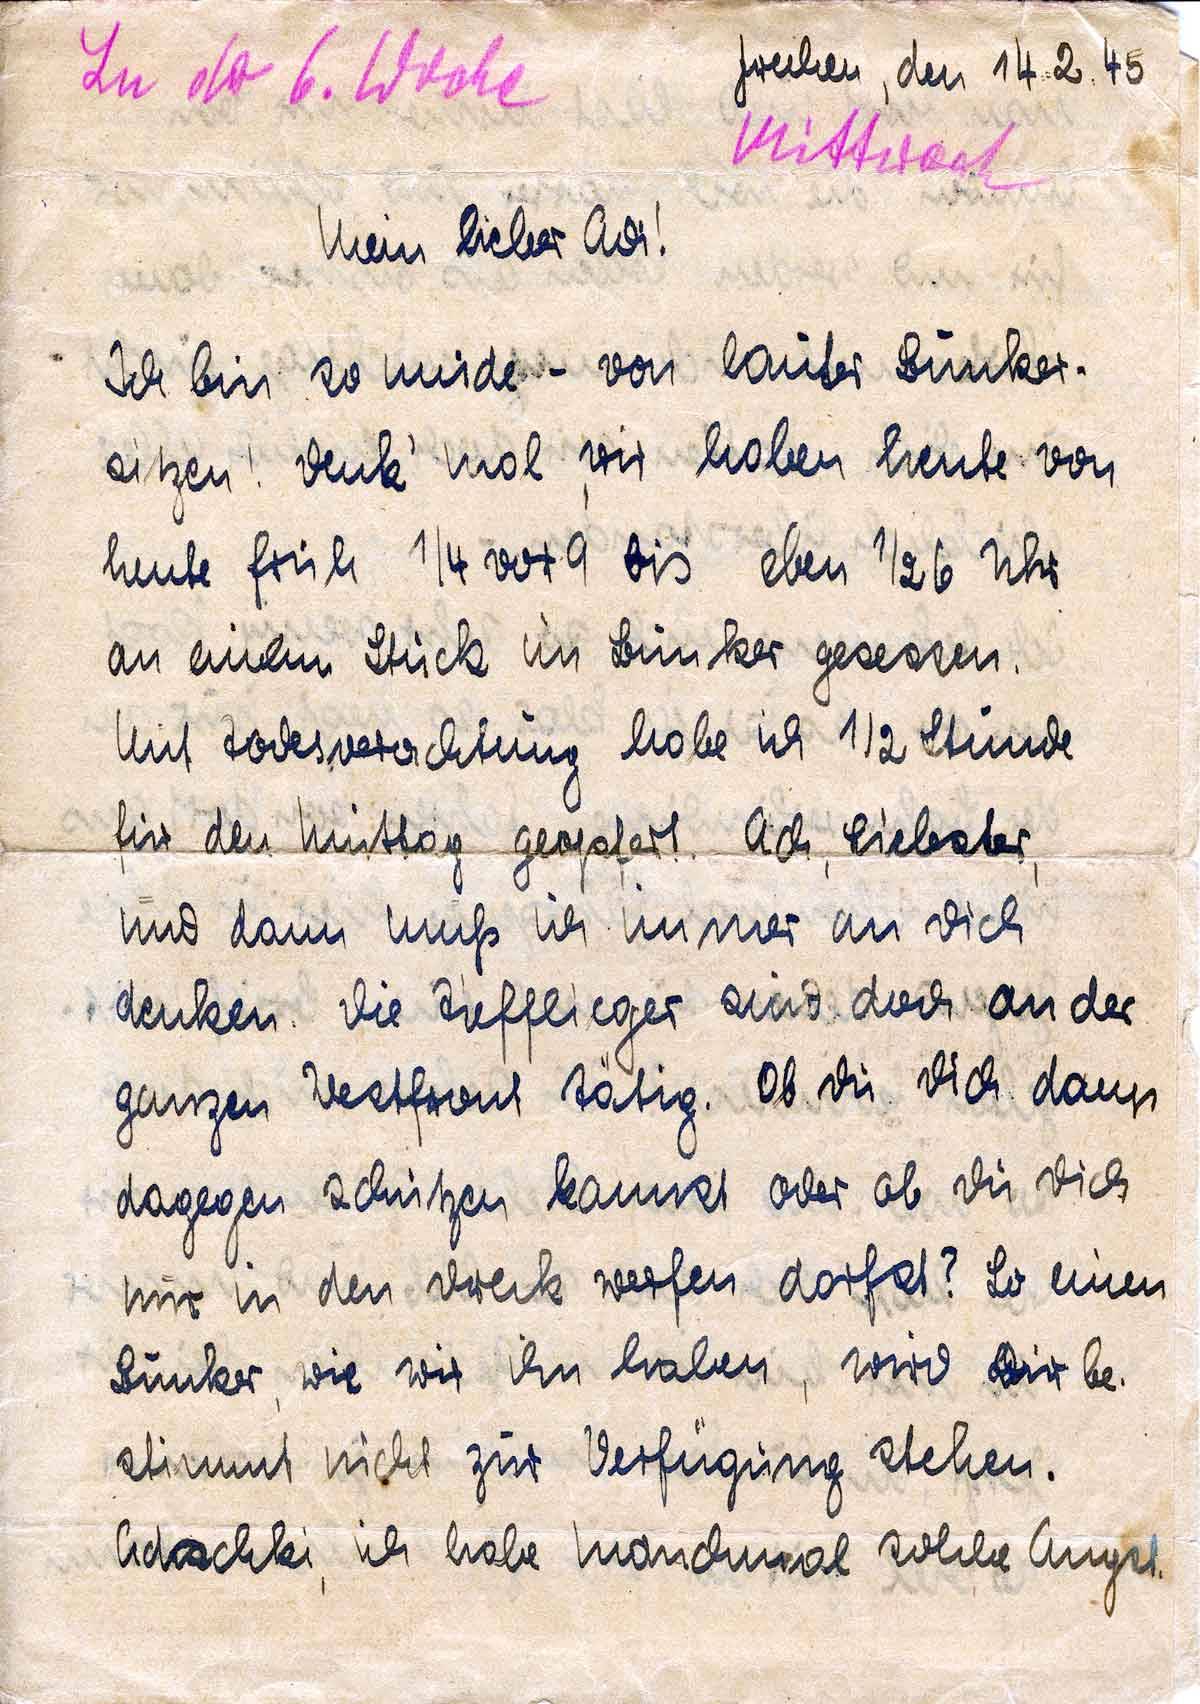 In der 6. Woche
Frechen, den 14.2.45
Mittwoch
Mein lieber Adi!
Ich bin so müde - von lauter Bunker-
sitzen! Denk' mal, wir haben heute von
heute früh 1/4 vor 9 bis eben 1/2 6 Uhr
an einem Stück im Bunker gesessen.
Mit Todesverachtung habe ich 1/2 Stunde
für den Mittag geopfert. Ach, Liebster,
und dann muß ich immer an Dich
denken. Die Tiefflieger sind doch an der
ganzen Westfront tätig. Ob Du Dich dann
dagegen schützen kannst oder ob Du Dich
nur in den Dreck werfen darfst? So einen
Bunker, wie wir ihn haben, wird Dir be-
stimmt nicht zur Verfügung stehen.
ich habe manchmal solche Angst.